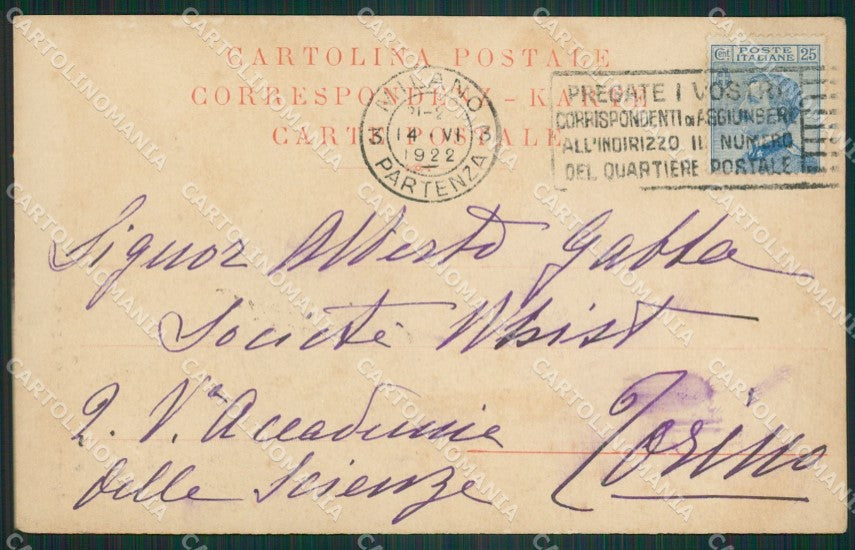 CARTOLINA POSTALE
CORRESPONDENZ-KARTE
CARTE POSTALE
MILANO
21-2
3 14 VI 3
1922
PARTENZA
Cent. POSTE ITALIANE 25
PREGATE I VOSTRI
CORRISPONDENTI DI AGGIUNGERE
ALL'INDIRIZZO IL NUMERO
DEL QUARTIERE POSTALE
Signor Alberto Gabba
Societè Whist
2. Va Accademia
delle Scienze Torino
CARTOLINOMANIA